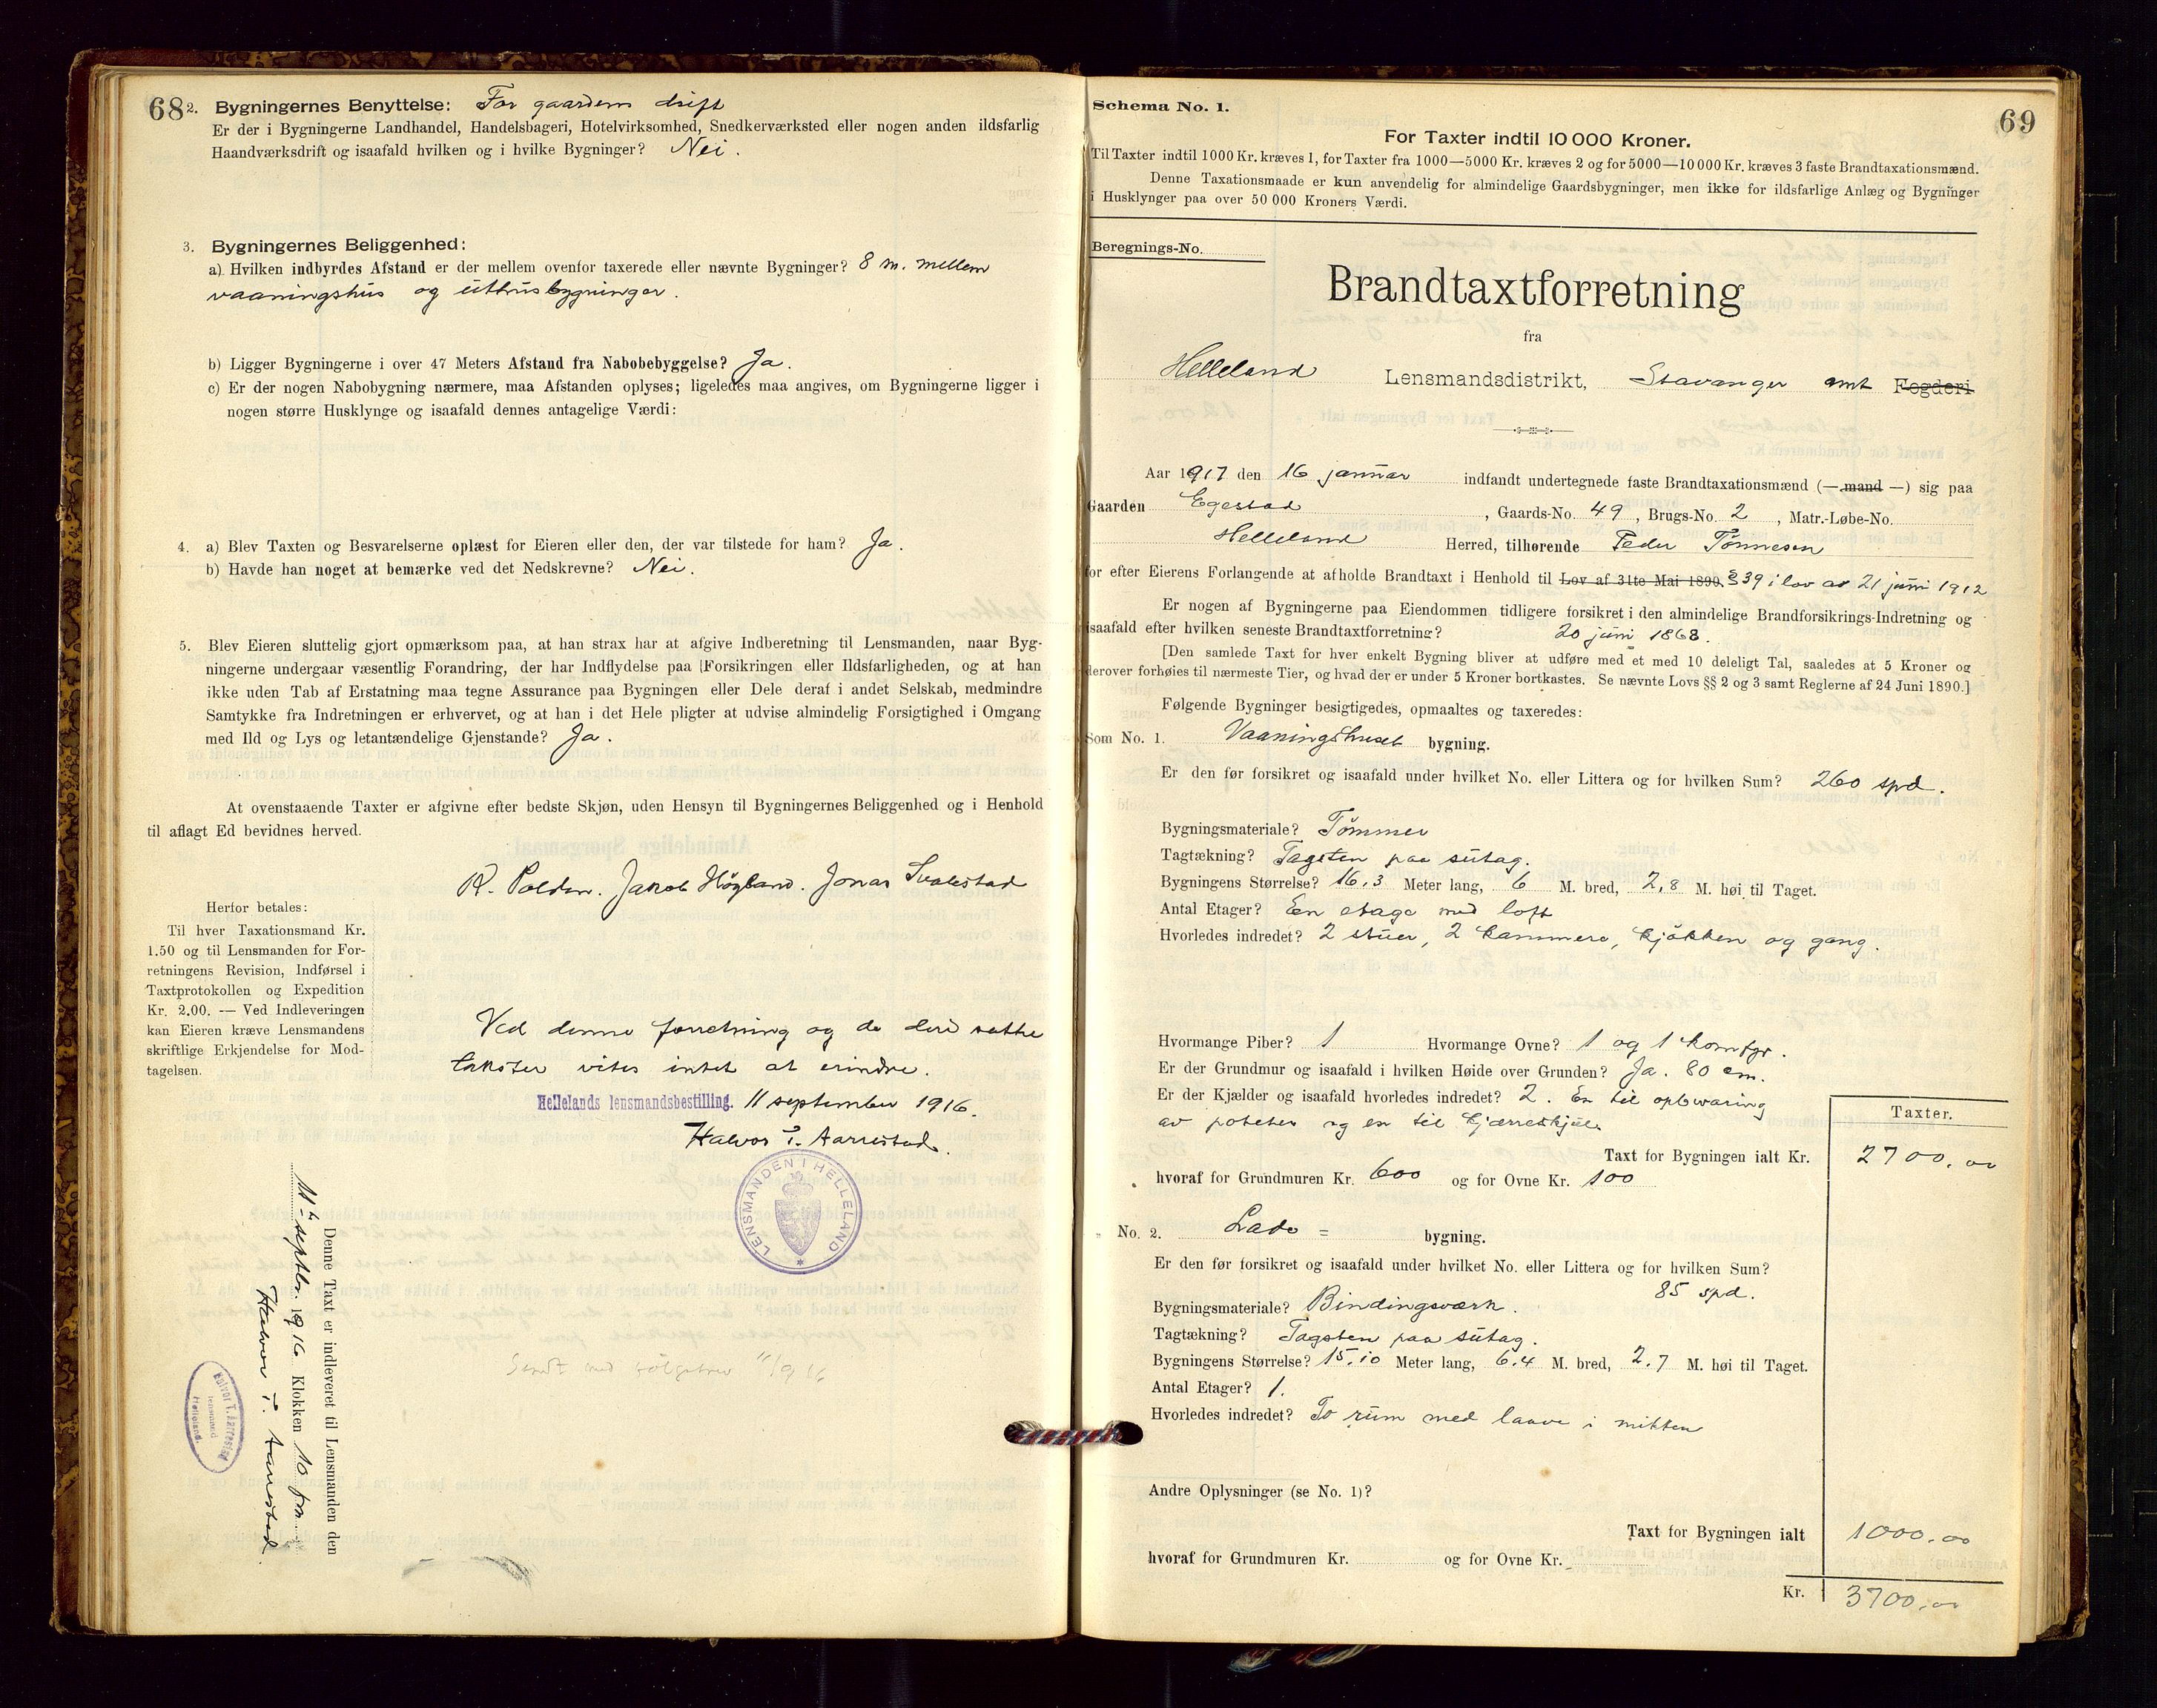 68
2. Bygningernes Benyttelse: For gaardens drift
Er der i Bygningerne Landhandel, Handelsbageri, Hotelvirksomhed, Snedkerværksted eller nogen anden ildsfarlig
Haandværksdrift og isaafald hvilken og i hvilke Bygninger? Nei.
3. Bygningernes Beliggenhed:
a) Hvilken indbyrdes Afstand er der mellem ovenfor taxerede eller nævnte Bygninger? 8 m. mellem
vaaningshus og uthusbygninger.
b) Ligger Bygningerne i over 47 Meters Afstand fra Nabobebyggelse? Ja.
c) Er der nogen Nabobygning nærmere, maa Afstanden oplyses; ligeledes maa angives, om Bygningerne ligger i
nogen større Husklynge og isaafald dennes antagelige Værdi:
4. a) Blev Taxten og Besvarelserne oplæst for Eieren eller den, der var tilstede for ham? Ja.
b) Havde han noget at bemærke ved det Nedskrevne? Nei.
5. Blev Eieren sluttelig gjort opmærksom paa, at han strax har at afgive Indberetning til Lensmanden, naar Byg-
ningerne undergaar væsentlig Forandring, der har Indflydelse paa Forsikringen eller Ildsfarligheden, og at han
ikke uden Tab af Erstatning maa tegne Assurance paa Bygningen eller Dele deraf i andet Selskab, medmindre
Samtykke fra Indretningen er erhvervet, og at han i det Hele pligter at udvise almindelig Forsigtighed i Omgang
med Ild og Lys og letantændelige Gjenstande? Ja.
At ovenstaaende Taxter er afgivne efter bedste Skjøn, uden Hensyn til Bygningernes Beliggenhed og i Henhold
til aflagt Ed bevidnes herved.
Jakob Høgland. Jonas
Herfor betales:
Til hver Taxationsmand Kr.
1.50 og til Lensmanden for For-
retningens Revision, Indførsel i
Taxtprotokollen og Expedition
Kr. 2.00. — Ved Indleveringen
kan Eieren kræve Lensmandens
skriftlige Erkjendelse for Mod-
tagelsen.
Ved denne forretning og de deri satte
takster vites intet at erindre.
Hellelands lensmandsbestilling. 11 september 1916.
Halvor T. Aarrestad.
LENSMANDEN I HELLELAND
Denne Taxt er indleveret til Lensmanden den
11te septbr. 1916 Klokken 10 fm.
Halvor T. Aarrestad.
Halvor T. Aarrestad
lensmand
Helleland.
Sendt med følgebrev 11/9 16
69
Schema No. 1.
For Taxter indtil 10 000 Kroner.
Til Taxter indtil 1000 Kr. kræves 1, for Taxter fra 1000—5000 Kr. kræves 2 og for 5000—10 000 Kr. kræves 3 faste Brandtaxationsmænd.
Denne Taxationsmaade er kun anvendelig for almindelige Gaardsbygninger, men ikke for ildsfarlige Anlæg og Bygninger
i Husklynger paa over 50 000 Kroners Værdi.
Beregnings-No.
Brandtaxtforretning
fra
Helleland Lensmandsdistrikt, Stavanger amt Fogderi
Aar 1917 den 16 januar indfandt undertegnede faste Brandtaxationsmænd (— mand —) sig paa
Gaarden Egestad, Gaards-No. 49, Brugs-No. 2, Matr.-Løbe-No.
Helleland Herred, tilhørende Peder Tønnesen
for efter Eierens Forlangende at afholde Brandtaxt i Henhold til Lov af 31te Mai 1890. § 39 i lov av 21 juni 1912
Er nogen af Bygningerne paa Eiendommen tidligere forsikret i den almindelige Brandforsikrings-Indretning og
isaafald efter hvilken seneste Brandtaxtforretning? 20 juni 1868.
[Den samlede Taxt for hver enkelt Bygning bliver at udføre med et med 10 deleligt Tal, saaledes at 5 Kroner og
derover forhøies til nærmeste Tier, og hvad der er under 5 Kroner bortkastes. Se nævnte Lovs §§ 2 og 3 samt Reglerne af 24 Juni 1890.]
Følgende Bygninger besigtigedes, opmaaltes og taxeredes:
Som No. 1. Vaaningshuset bygning.
Er den før forsikret og isaafald under hvilket No. eller Littera og for hvilken Sum? 260 spd.
Bygningsmateriale? Tømmer
Tagtækning? Tagsten paa sutag.
Bygningens Størrelse? 16,3 Meter lang, 6 M. bred, 2,8 M. høi til Taget.
Antal Etager? En etage med loft
Hvorledes indredet? 2 stuer, 2 kammere, kjøkken og gang.
Hvormange Piber? 1 Hvormange Ovne? 1 og 1 komfyr.
Er der Grundmur og isaafald i hvilken Høide over Grunden? Ja. 80 cm.
Er der Kjælder og isaafald hvorledes indredet? 2. En til opbevaring
av poteter og en til kjærreskjul.
Taxter.
Taxt for Bygningen ialt Kr. 2700,00
hvoraf for Grundmuren Kr. 600 og for Ovne Kr. 100
" No. 2. Lade = bygning.
Er den før forsikret og isaafald under hvilket No. eller Littera og for hvilken Sum?
85 spd.
Bygningsmateriale? Bindingsværk.
Tagtækning? Tagsten paa sutag.
Bygningens Størrelse? 15,10 Meter lang, 6.4 M. bred, 2.7 M. høi til Taget.
Antal Etager? 1.
Hvorledes indredet? To rum med laave i mitten
Andre Oplysninger (se No. 1)?
Taxt for Bygningen ialt 1000,00
hvoraf for Grundmuren Kr. og for Ovne Kr.
Kr. 3700,00